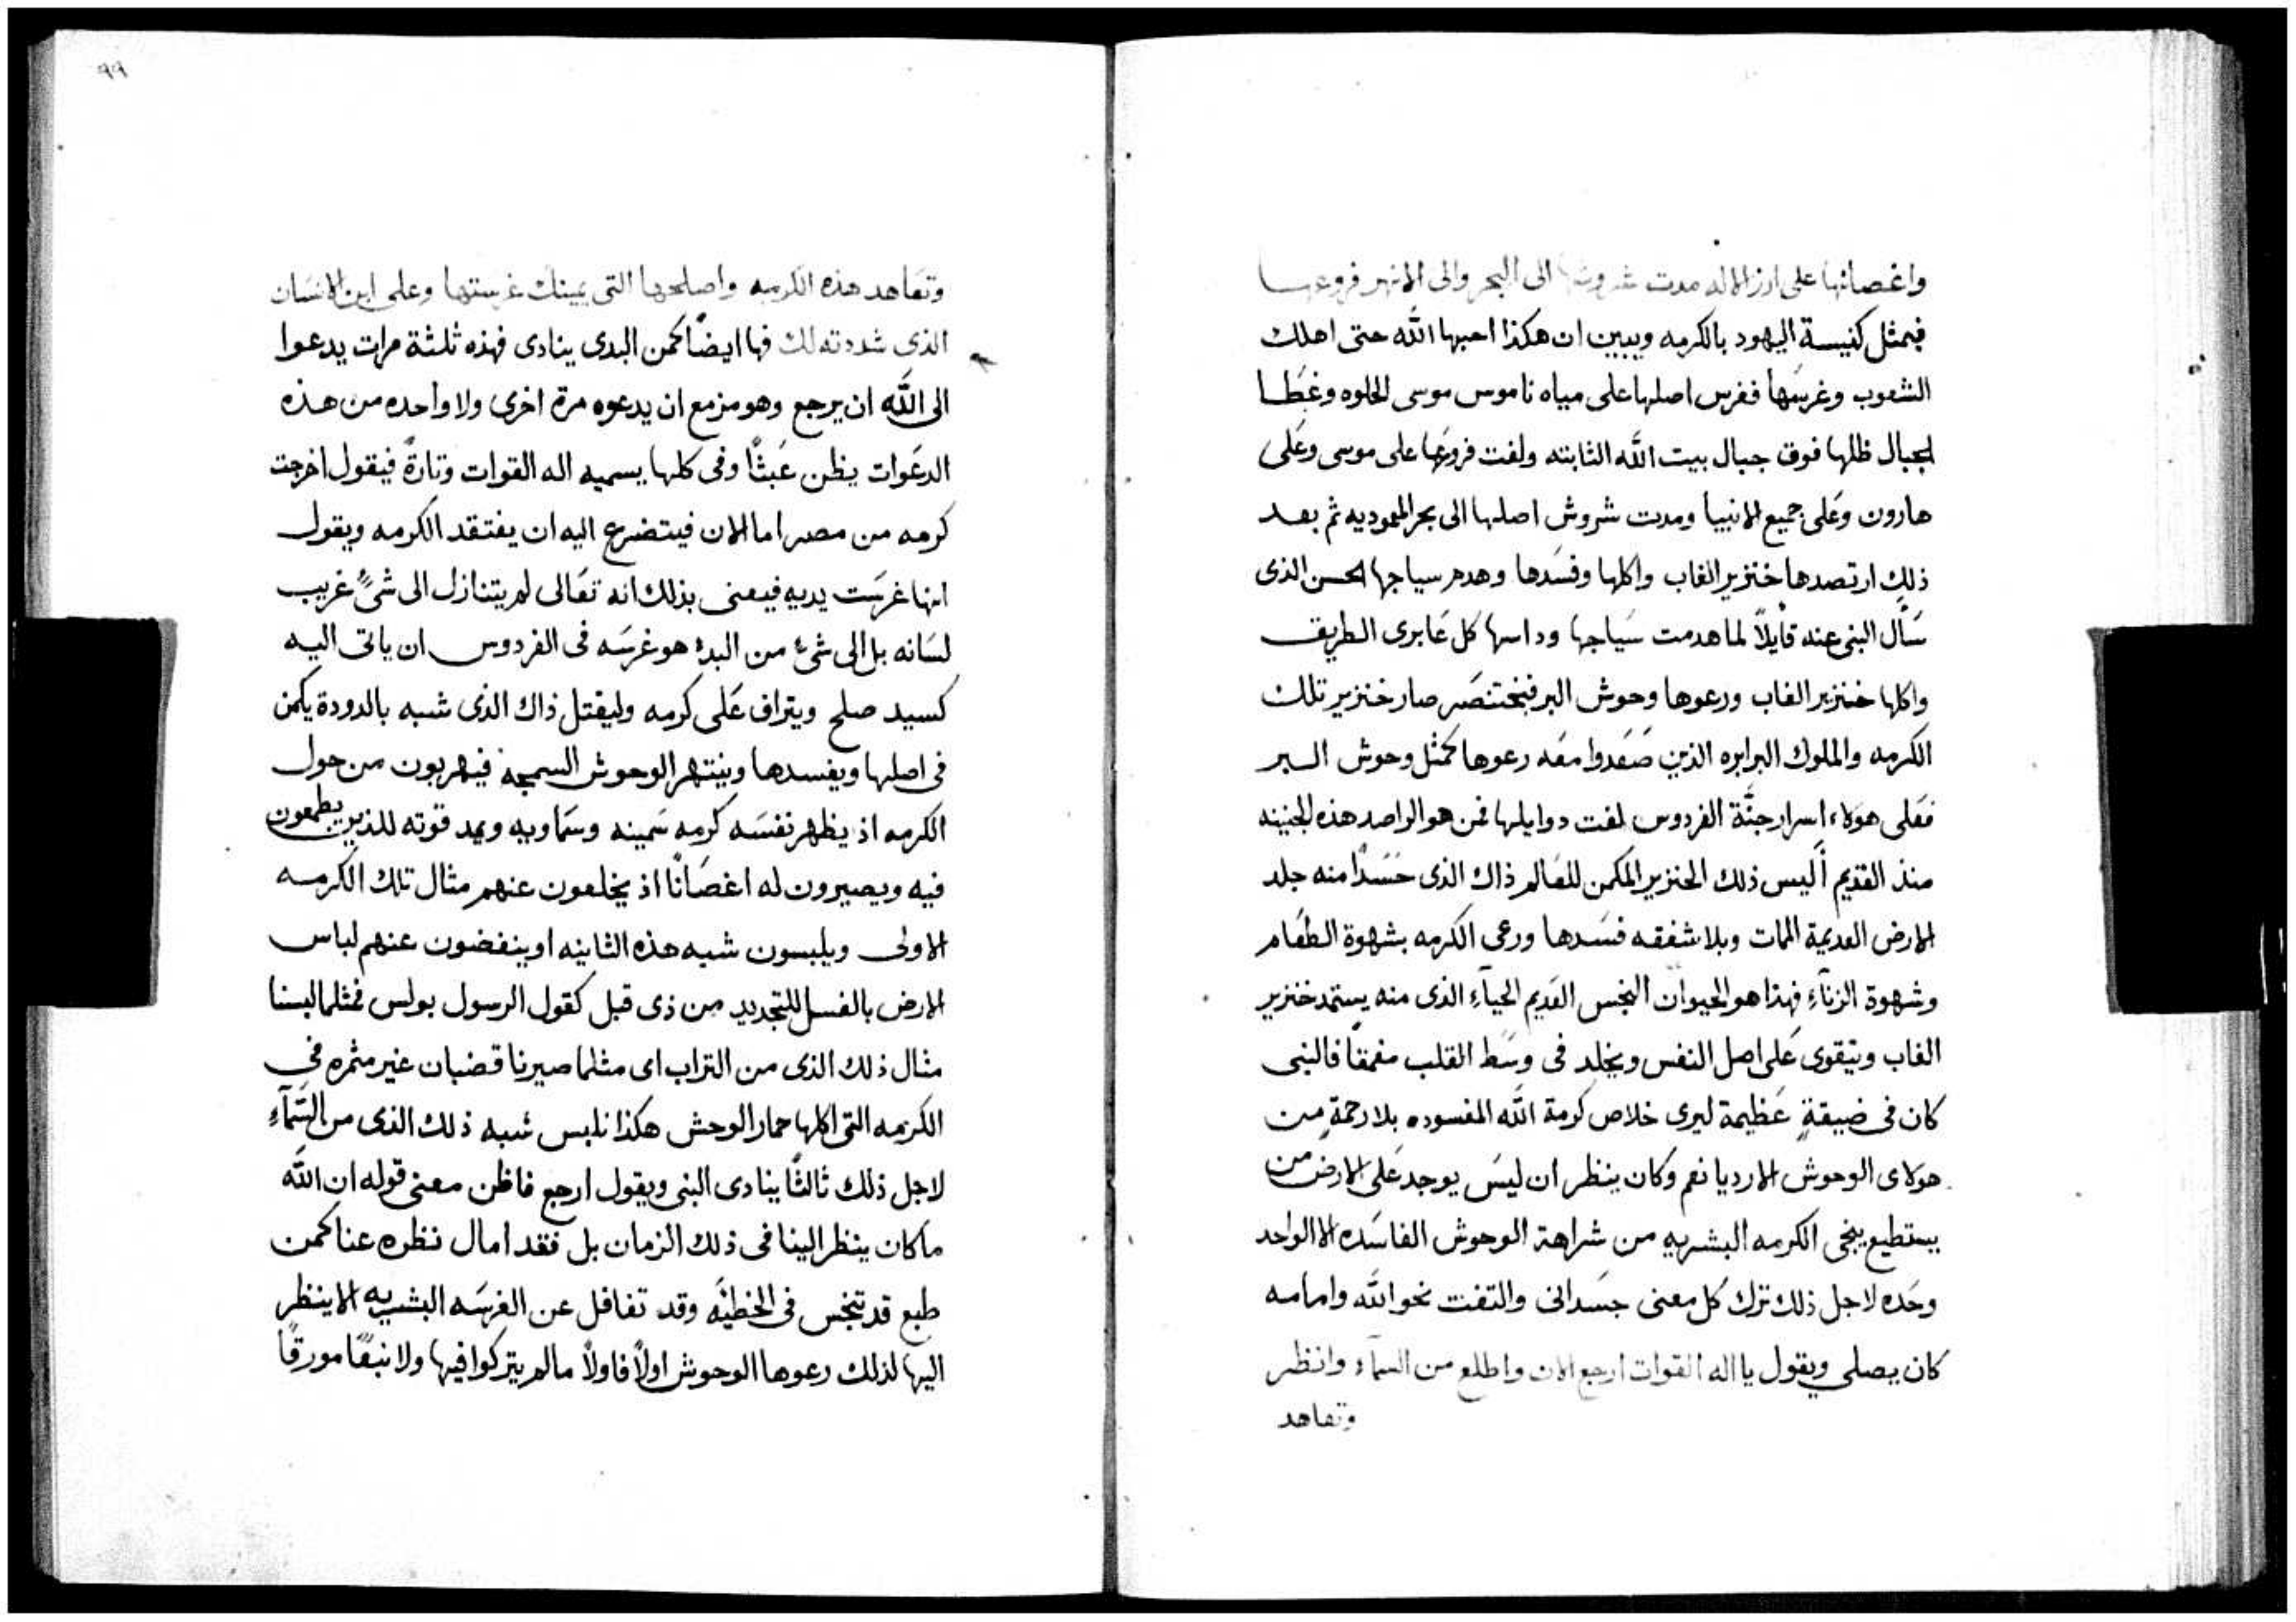 واغصانها على ارز الاله مدت شروشها الى البحر والى الانهر فروعها
فيمثل كنيسة اليهود بالكرمه ويبين ان هكذا احبها اللّه حتى اهلك
الشعوب وغرسها ففرس اصلها على مياه ناموس موسى الحلوه وغطا
الجبال ظلها فوق جبال بيت اللّه الثابته ولفت فروعها على موسى وعلى
هارون وعلى جميع الانبيا ومدت شروش اصلها الى بحر المعموديه ثم بعد
ذلك ارتصدها خنزير الغاب واكلها وفسدها وهدم سياجها الحسن الذى
سأل النبى عنه قايلاً لما هدمت سياجها وداسها كل عابرى الطريق
واكلها خنزير الغاب ورعوها وحوش البر فبختنصر صار خنزير تلك
الكرمه والملوك البرابره الذين صعدوا معه رعوها كمثل وحوش البر
فعلى هولاء اسرار جنّة الفردوس لفت دوايلها فمن هو الراصد هذه الجنينه
منذ القديم أليس ذلك الخنزير المكمن للعالم ذاك الذى حسدًا منه جلد
الارض العديمة المات وبلا شفقه فسدها ورعى الكرمه بشهوة الطعام
وشهوة الزناء فهذا هو الحيوان النجس القديم الحياء الذى منه يستمد خنزير
الغاب ويتقوى على اصل النفس ويخلد فى وسط القلب منعمقاً فالنبى
كان فى ضيقةٍ عظيمة ليرى خلاص كرمة اللّه المفسوده بلا رحمةٍ من
هولاى الوحوش الارديا نعم وكان ينظر ان ليس يوجد على الارض من
يستطيع ينجى الكرمه البشريه من شراهة الوحوش الفاسده الا الواحد
وحده لاجل ذلك ترك كل معنى جسدانى والتفت نحو اللّه وامامه
كان يصلى ويقول يا اله القوات ارجع الان واطلع من السماء وانظر
وتعاهد
٩٩
وتعاهد هذه الكرمه واصلحها التى يمينك غرستها وعلى ابن الانسان
الذى شددته لك فها ايضًا كمن البدى ينادى فهذه ثلثة مرات يدعوا
الى اللّه ان يرجع وهو مزمع ان يدعوه مرة اخرى ولا واحده من هذه
الدعوات يظن عبثًا وفى كلها يسميه اله القوات وتارةً فيقول اخرجت
كرمه من مصر اما الان فيتضرع اليه ان يفتقد الكرمه ويقول
انها غرست يديه فيعنى بذلك انه تعالى لم يتنازل الى شىءٍ غريب
لسانه بل الى شىء من البدء هو غرسه فى الفردوس ان ياتى اليه
كسيد صلح ويتراف على كرمه وليقتل ذاك الذى شبه بالدودة يكمن
فى اصلها ويفسدها وينتهر الوحوش السمجه فيهربون من حول
الكرمه اذ يظهر نفسه كرمه سمينه وسماويه ويمد قوته للذين يطعمون
فيه ويصيرون له اغصانًا اذ يخلعون عنهم مثال تلك الكرمه
الاولى ويلبسون شبه هذه الثانيه او ينفضون عنهم لباس
الارض بالغسل للتجديد من ذى قبل كقول الرسول بولس فمثلما لبسنا
مثال ذلك الذى من التراب اى مثلما صيرنا قضبان غير مثمره فى
الكرمه التى اكلها حمار الوحش هكذا نلبس شبه ذلك الذى من السمآء
لاجل ذلك ثالثًا ينادى النبى ويقول ارجع فاظن معنى قوله ان اللّه
ما كان ينظر الينا فى ذلك الزمان بل فقد امال نظره عنا كمن
طبع قد تنجس فى الخطيّه وقد تغافل عن الغرسه البشريه الا ينظر
اليها لذلك رعوها الوحوش اولاً فاولاً ما لم يتركوا فيها ولا نبقًا مورقًا